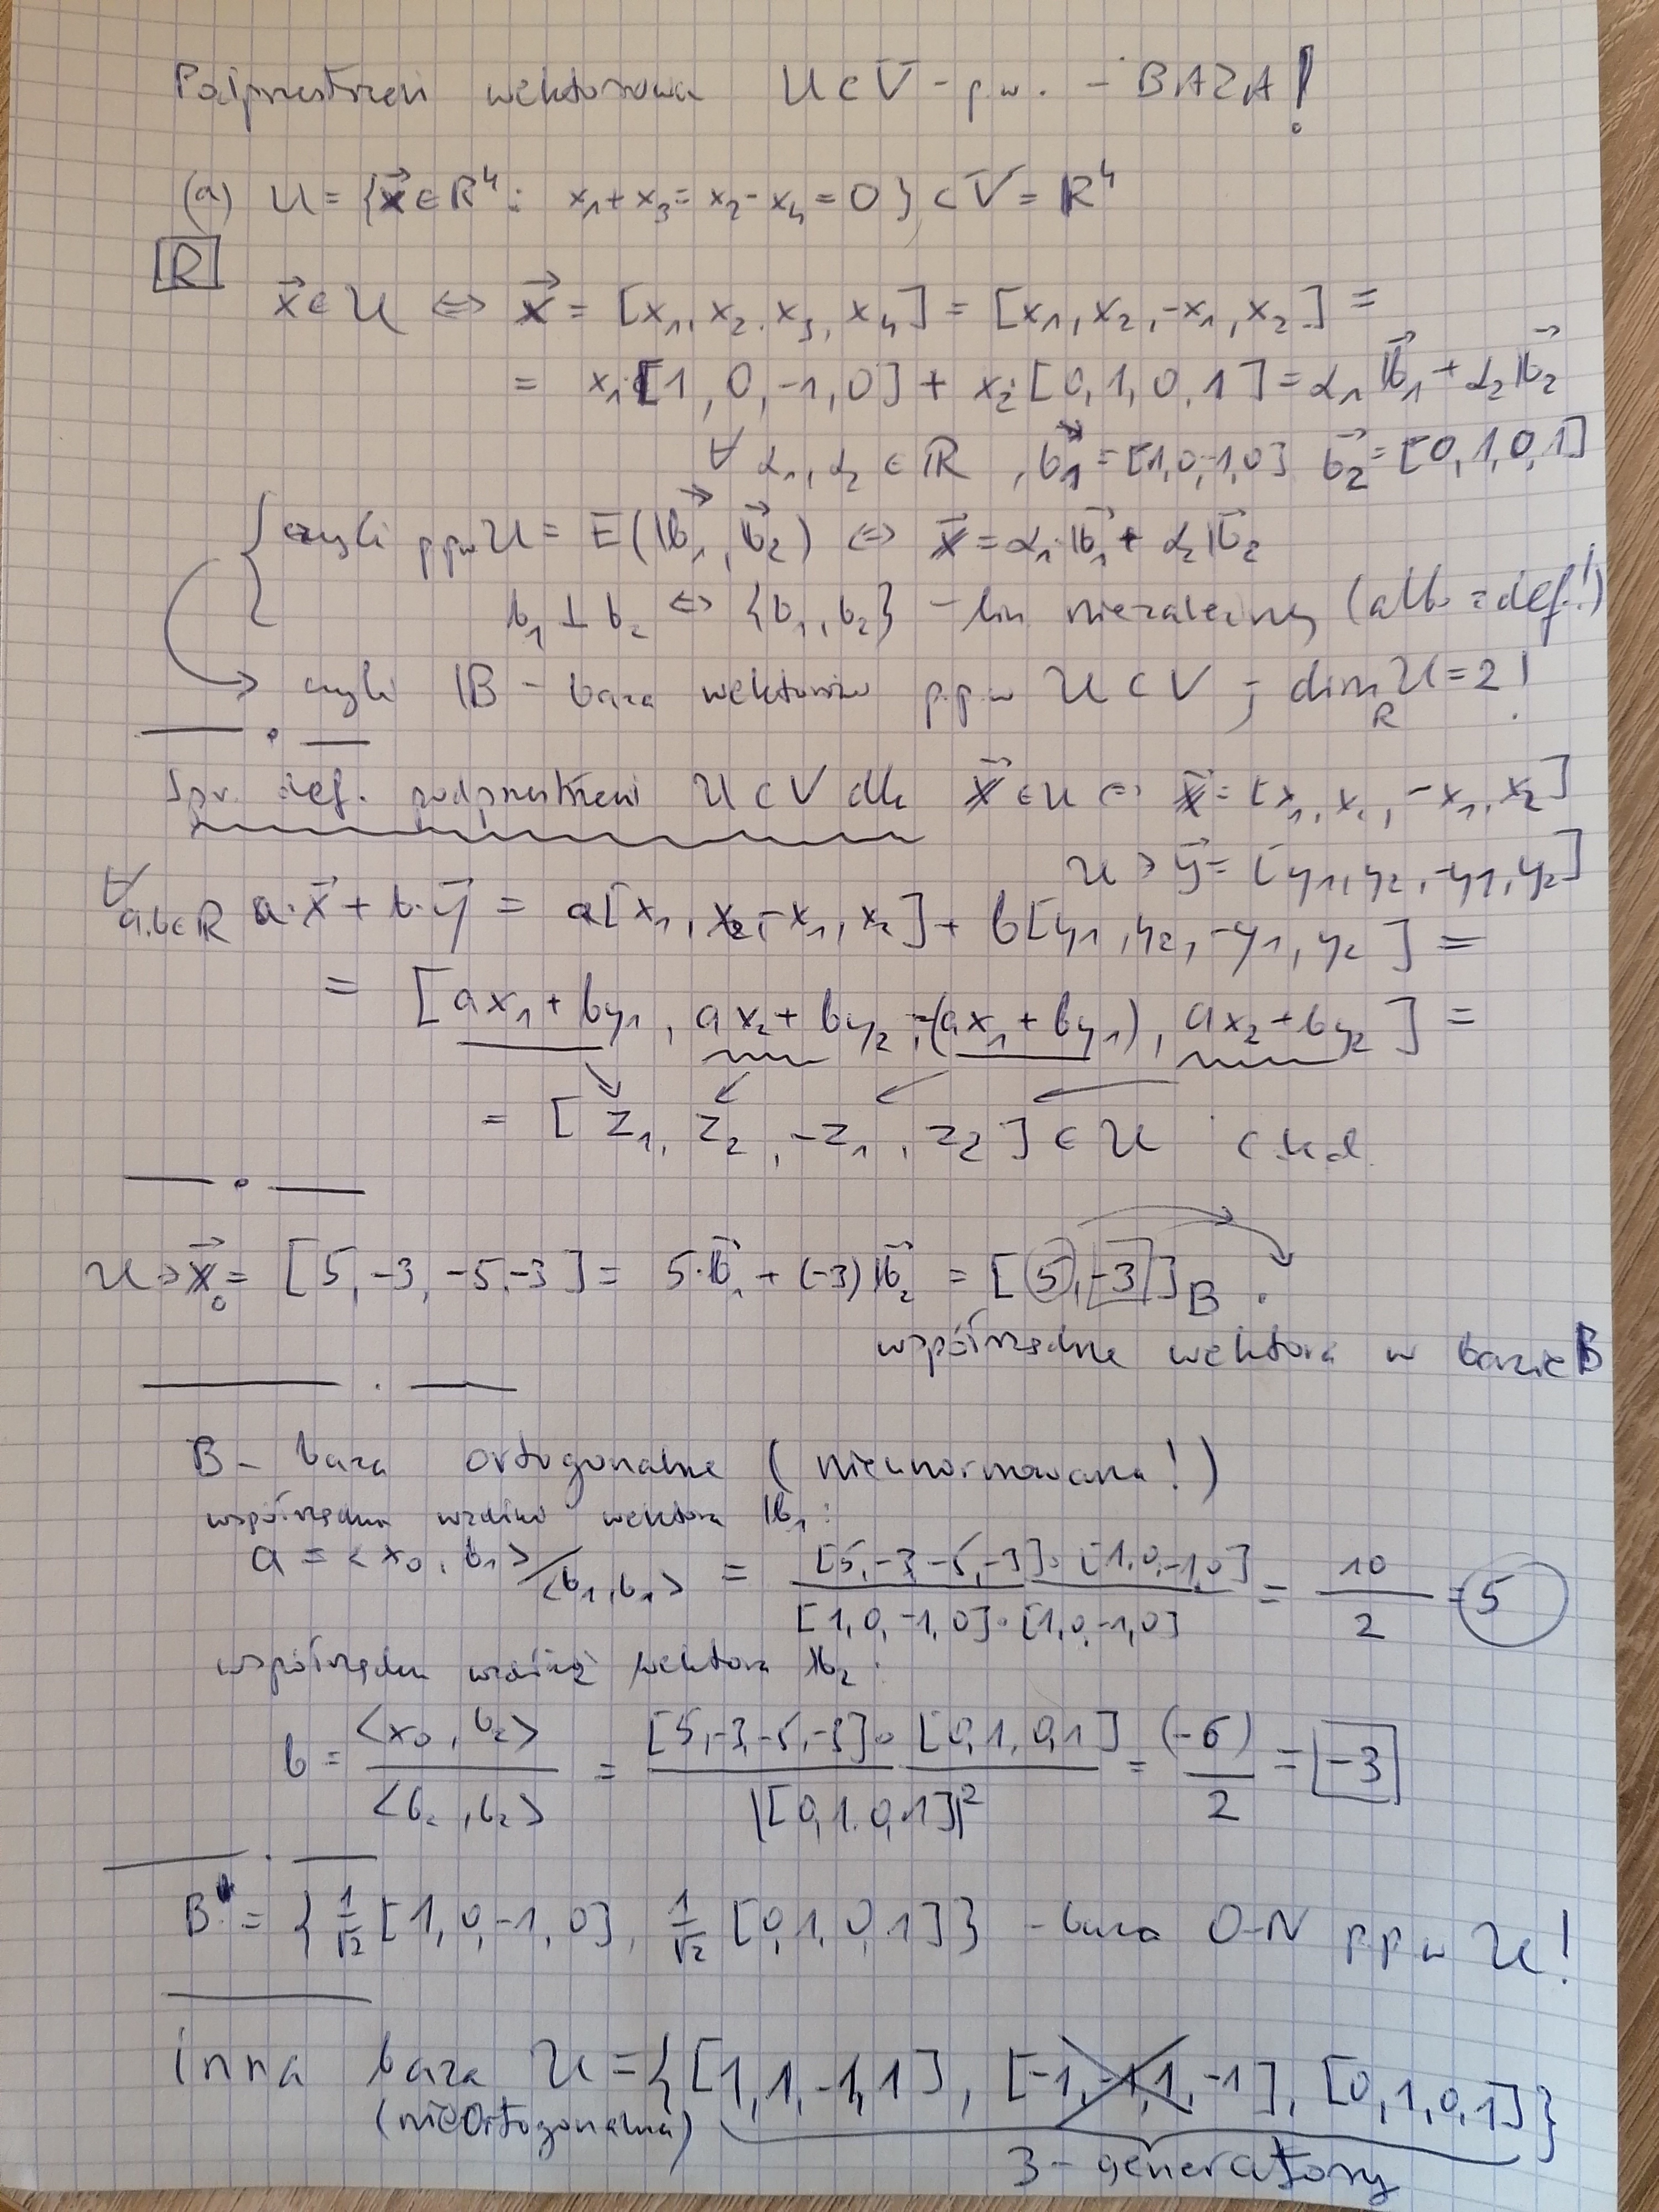 Podprzestrzeń wektorowa U⊂V - p.w. - BAZA!
(a) U = {x⃗ ∈ R⁴: x₁+x₃ = x₂-x₄ = 0} ⊂ V = R⁴
R
x⃗ ∈ U ⇔ x⃗ = [x₁, x₂, x₃, x₄] = [x₁, x₂, -x₁, x₂] =
= x₁·[1, 0, -1, 0] + x₂·[0, 1, 0, 1] = α₁ b⃗₁ + α₂ b⃗₂
∀ α₁, α₂ ∈ R, b⃗₁ = [1, 0, -1, 0] b⃗₂ = [0, 1, 0, 1]
czyli ppw U = E(b⃗₁, b⃗₂) ⇔ x⃗ = α₁·b⃗₁ + α₂ b⃗₂
b₁ ⊥ b₂ ⇔ {b₁, b₂} - lin niezależny (albo z def!)
→ czyli B - baza wektorów p.p.w U ⊂ V ; dim_R U = 2!
Spr. def. podprzestrzeni U ⊂ V dla x⃗ ∈ U ⇔ x⃗ = [x₁, x₂, -x₁, x₂]
U ∋ y⃗ = [y₁, y₂, -y₁, y₂]
∀ a,b∈R a·x⃗ + b·y⃗ = a[x₁, x₂, -x₁, x₂] + b[y₁, y₂, -y₁, y₂] =
= [ax₁+by₁, ax₂+by₂, -(ax₁+by₁), ax₂+by₂] =
= [z₁, z₂, -z₁, z₂] ∈ U c.k.d.
U ∋ x⃗₀ = [5, -3, -5, -3] = 5·b⃗₁ + (-3) b⃗₂ = [5, -3]_B .
współrzędne wektora w bazie B
B - baza ortogonalna (nieunormowana!)
współrzędna wzdłuż wektora b₁:
a = <x₀, b₁>/<b₁, b₁> = [5, -3, -5, -3]∘[1, 0, -1, 0] / [1, 0, -1, 0]∘[1, 0, -1, 0] = 10/2 = 5
współrzędna wzdłuż wektora b₂:
b = <x₀, b₂>/<b₂, b₂> = [5, -3, -5, -3]∘[0, 1, 0, 1] / |[0, 1, 0, 1]|² = (-6)/2 = -3
B* = {1/√2 [1, 0, -1, 0], 1/√2 [0, 1, 0, 1]} - baza O-N ppw U!
inna baza U = {[1, 1, -1, 1], [-1, -1, 1, -1], [0, 1, 0, 1]}
(nieortogonalna)
3 - generatory